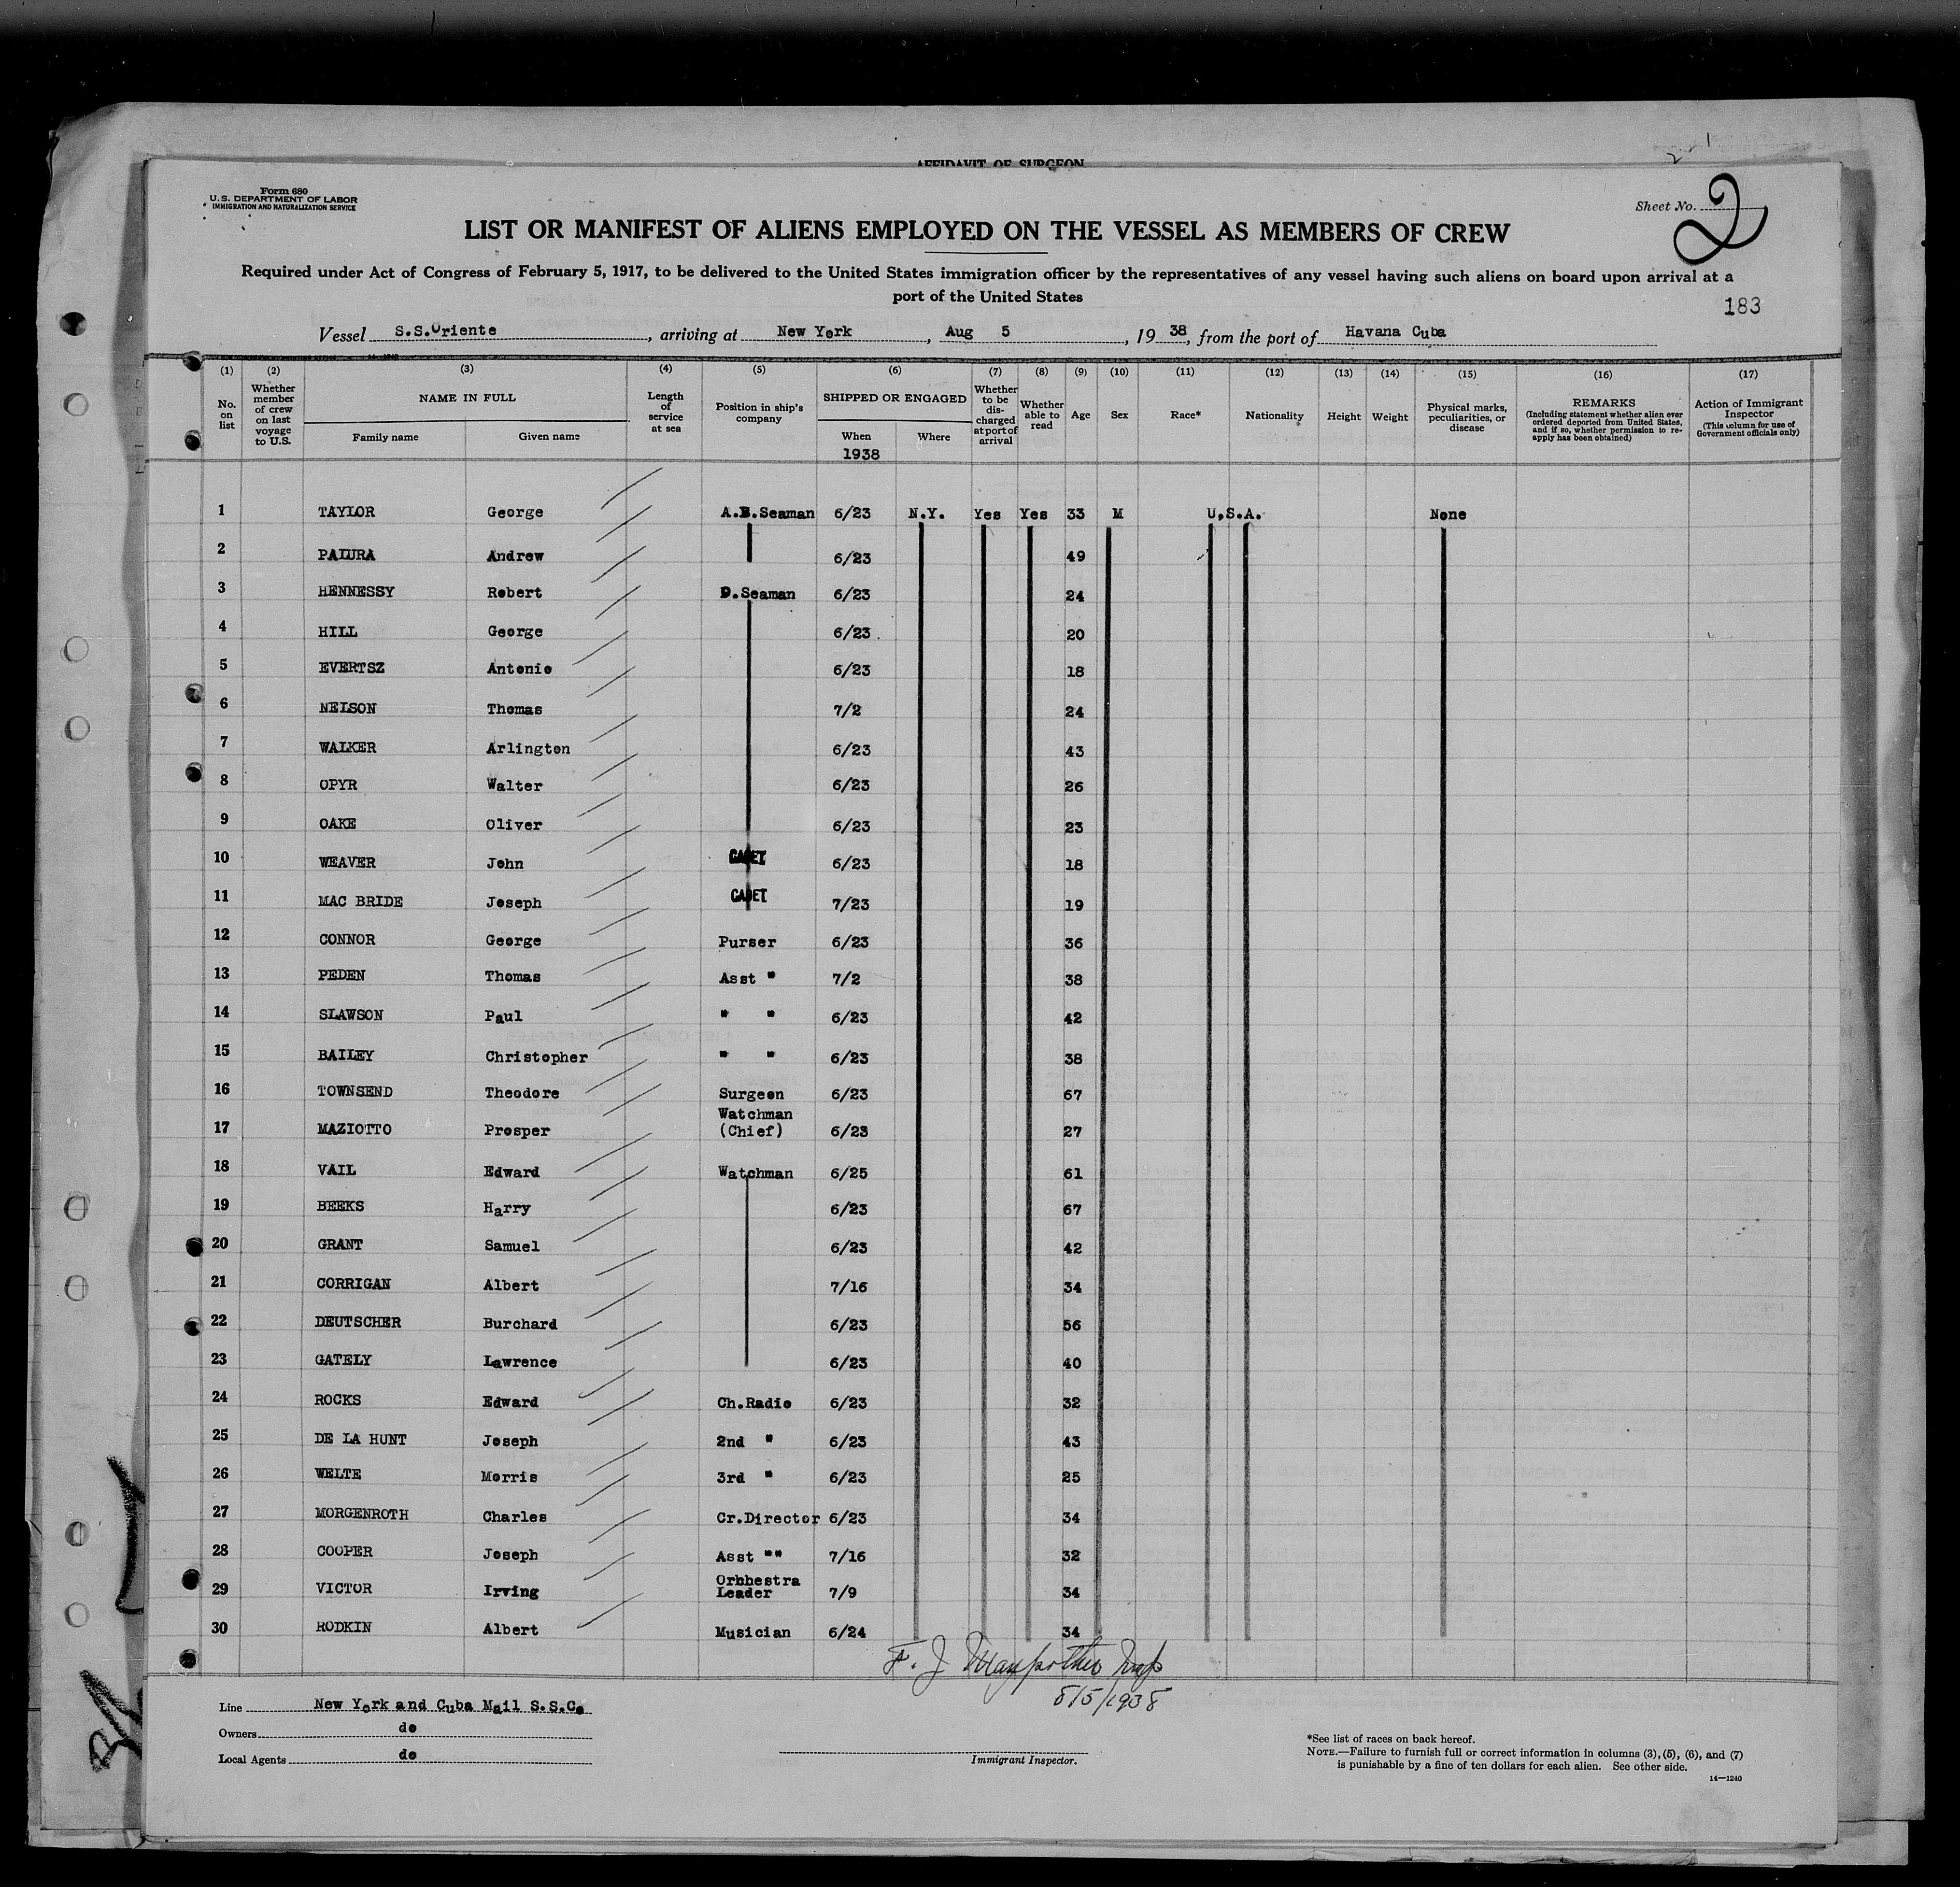 AFFIDAVIT OF SURGEON
Form 680
U.S. DEPARTMENT OF LABOR
IMMIGRATION AND NATURALIZATION SERVICE
Sheet No. 2
LIST OR MANIFEST OF ALIENS EMPLOYED ON THE VESSEL AS MEMBERS OF CREW
Required under Act of Congress of February 5, 1917, to be delivered to the United States immigration officer by the representatives of any vessel having such aliens on board upon arrival at a
port of the United States
183
Vessel S.S.Oriente, arriving at New York, Aug 5, 1938, from the port of Havana Cuba
(1) (2) (3) (4) (5) (6) (7) (8) (9) (10) (11) (12) (13) (14) (15) (16) (17)
No. on list
Whether member of crew on last voyage to U.S.
NAME IN FULL
Family name
Given name
Length of service at sea
Position in ship's company
SHIPPED OR ENGAGED
When
1938
Where
Whether to be discharged at port of arrival
Whether able to read
Age
Sex
Race*
Nationality
Height
Weight
Physical marks, peculiarities, or disease
REMARKS
(Including statement whether alien ever ordered deported from United States, and if so, whether permission to re-apply has been obtained)
Action of Immigrant Inspector
(This column for use of Government officials only)
1 TAYLOR George A.B.Seaman 6/23 N.Y. Yes Yes 33 M U.S.A. None
2 PALURA Andrew 6/23 49
3 HENNESSY Robert D.Seaman 6/23 24
4 HILL George 6/23 20
5 EVERTSZ Antonio 6/23 18
6 NELSON Thomas 7/2 24
7 WALKER Arlington 6/23 43
8 OPYR Walter 6/23 26
9 OAKE Oliver 6/23 23
10 WEAVER John CADET 6/23 18
11 MAC BRIDE Joseph CADET 7/23 19
12 CONNOR George Purser 6/23 36
13 PEDEN Thomas Asst " 7/2 38
14 SLAWSON Paul " " 6/23 42
15 BAILEY Christopher " " 6/23 38
16 TOWNSEND Theodore Surgeon 6/23 67
17 MAZIOTTO Prosper Watchman (Chief) 6/23 27
18 VAIL Edward Watchman 6/25 61
19 BEEKS Harry 6/23 67
20 GRANT Samuel 6/23 42
21 CORRIGAN Albert 7/16 34
22 DEUTSCHER Burchard 6/23 56
23 GATELY Lawrence 6/23 40
24 ROCKS Edward Ch.Radio 6/23 32
25 DE LA HUNT Joseph 2nd " 6/23 43
26 WELTE Morris 3rd " 6/23 25
27 MORGENROTH Charles Cr.Director 6/23 34
28 COOPER Joseph Asst "" 7/16 32
29 VICTOR Irving Orbhestra Leader 7/9 34
30 RODKIN Albert Musician 6/24 34
F. J.
8/5/1938
Line New York and Cuba Mail S.S.Co
Owners do
Local Agents do
Immigrant Inspector.
*See list of races on back hereof.
NOTE.—Failure to furnish full or correct information in columns (3), (5), (6), and (7)
is punishable by a fine of ten dollars for each alien. See other side.
14—1240